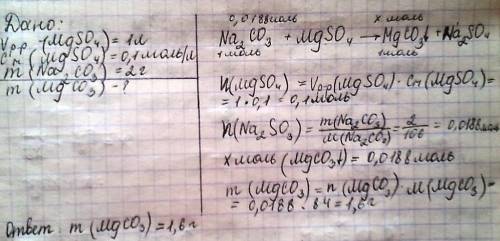 Дано:
Vр.р. (MgSO₄) = 1л
Cм (MgSO₄) = 0,1моль/л
m (Na₂CO₃) = 2г
m (MgCO₃) - ?
0,0188моль x моль
Na₂CO₃ + MgSO₄ → MgCO₃↓ + Na₂SO₄
1моль 1моль
n(MgSO₄) = Vр-р(MgSO₄) · Cм(MgSO₄) =
= 1 · 0,1 = 0,1моль
n(Na₂SO₃) = m(Na₂CO₃) / M(Na₂CO₃) = 2 / 106 = 0,0188моль
x моль (MgCO₃↓) = 0,0188моль
m (MgCO₃) = n (MgCO₃) · M(MgCO₃) =
= 0,0188 · 84 = 1,6г
Ответ: m (MgCO₃) = 1,6г